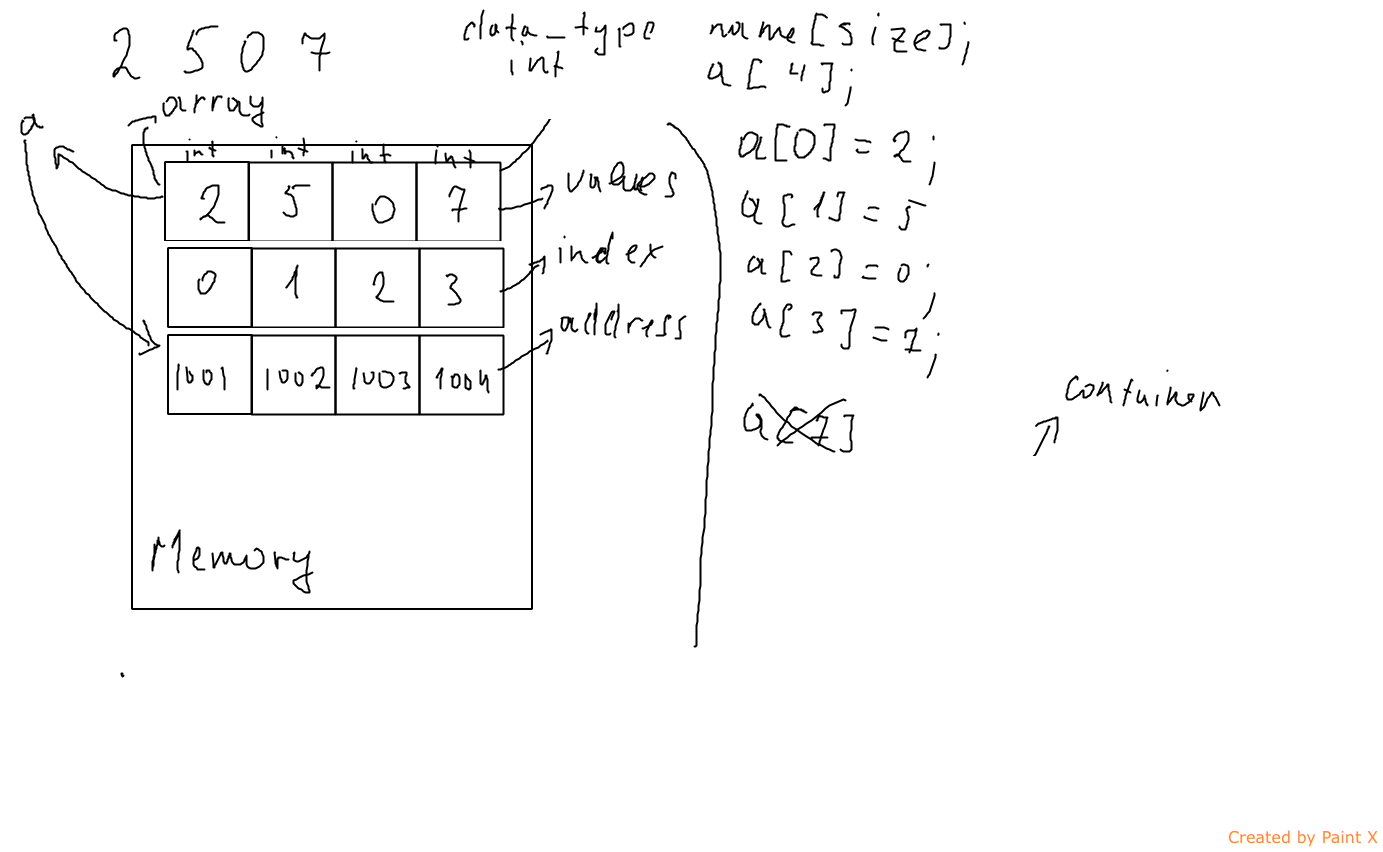 2 5 0 7
data_type name[size];
int a[4];
array
a
int int int int
2 5 0 7
values
0 1 2 3
index
1001 1002 1003 1004
address
Memory
a[0] = 2;
a[1] = 5
a[2] = 0;
a[3] = 7;
a[7]
container
Created by Paint X